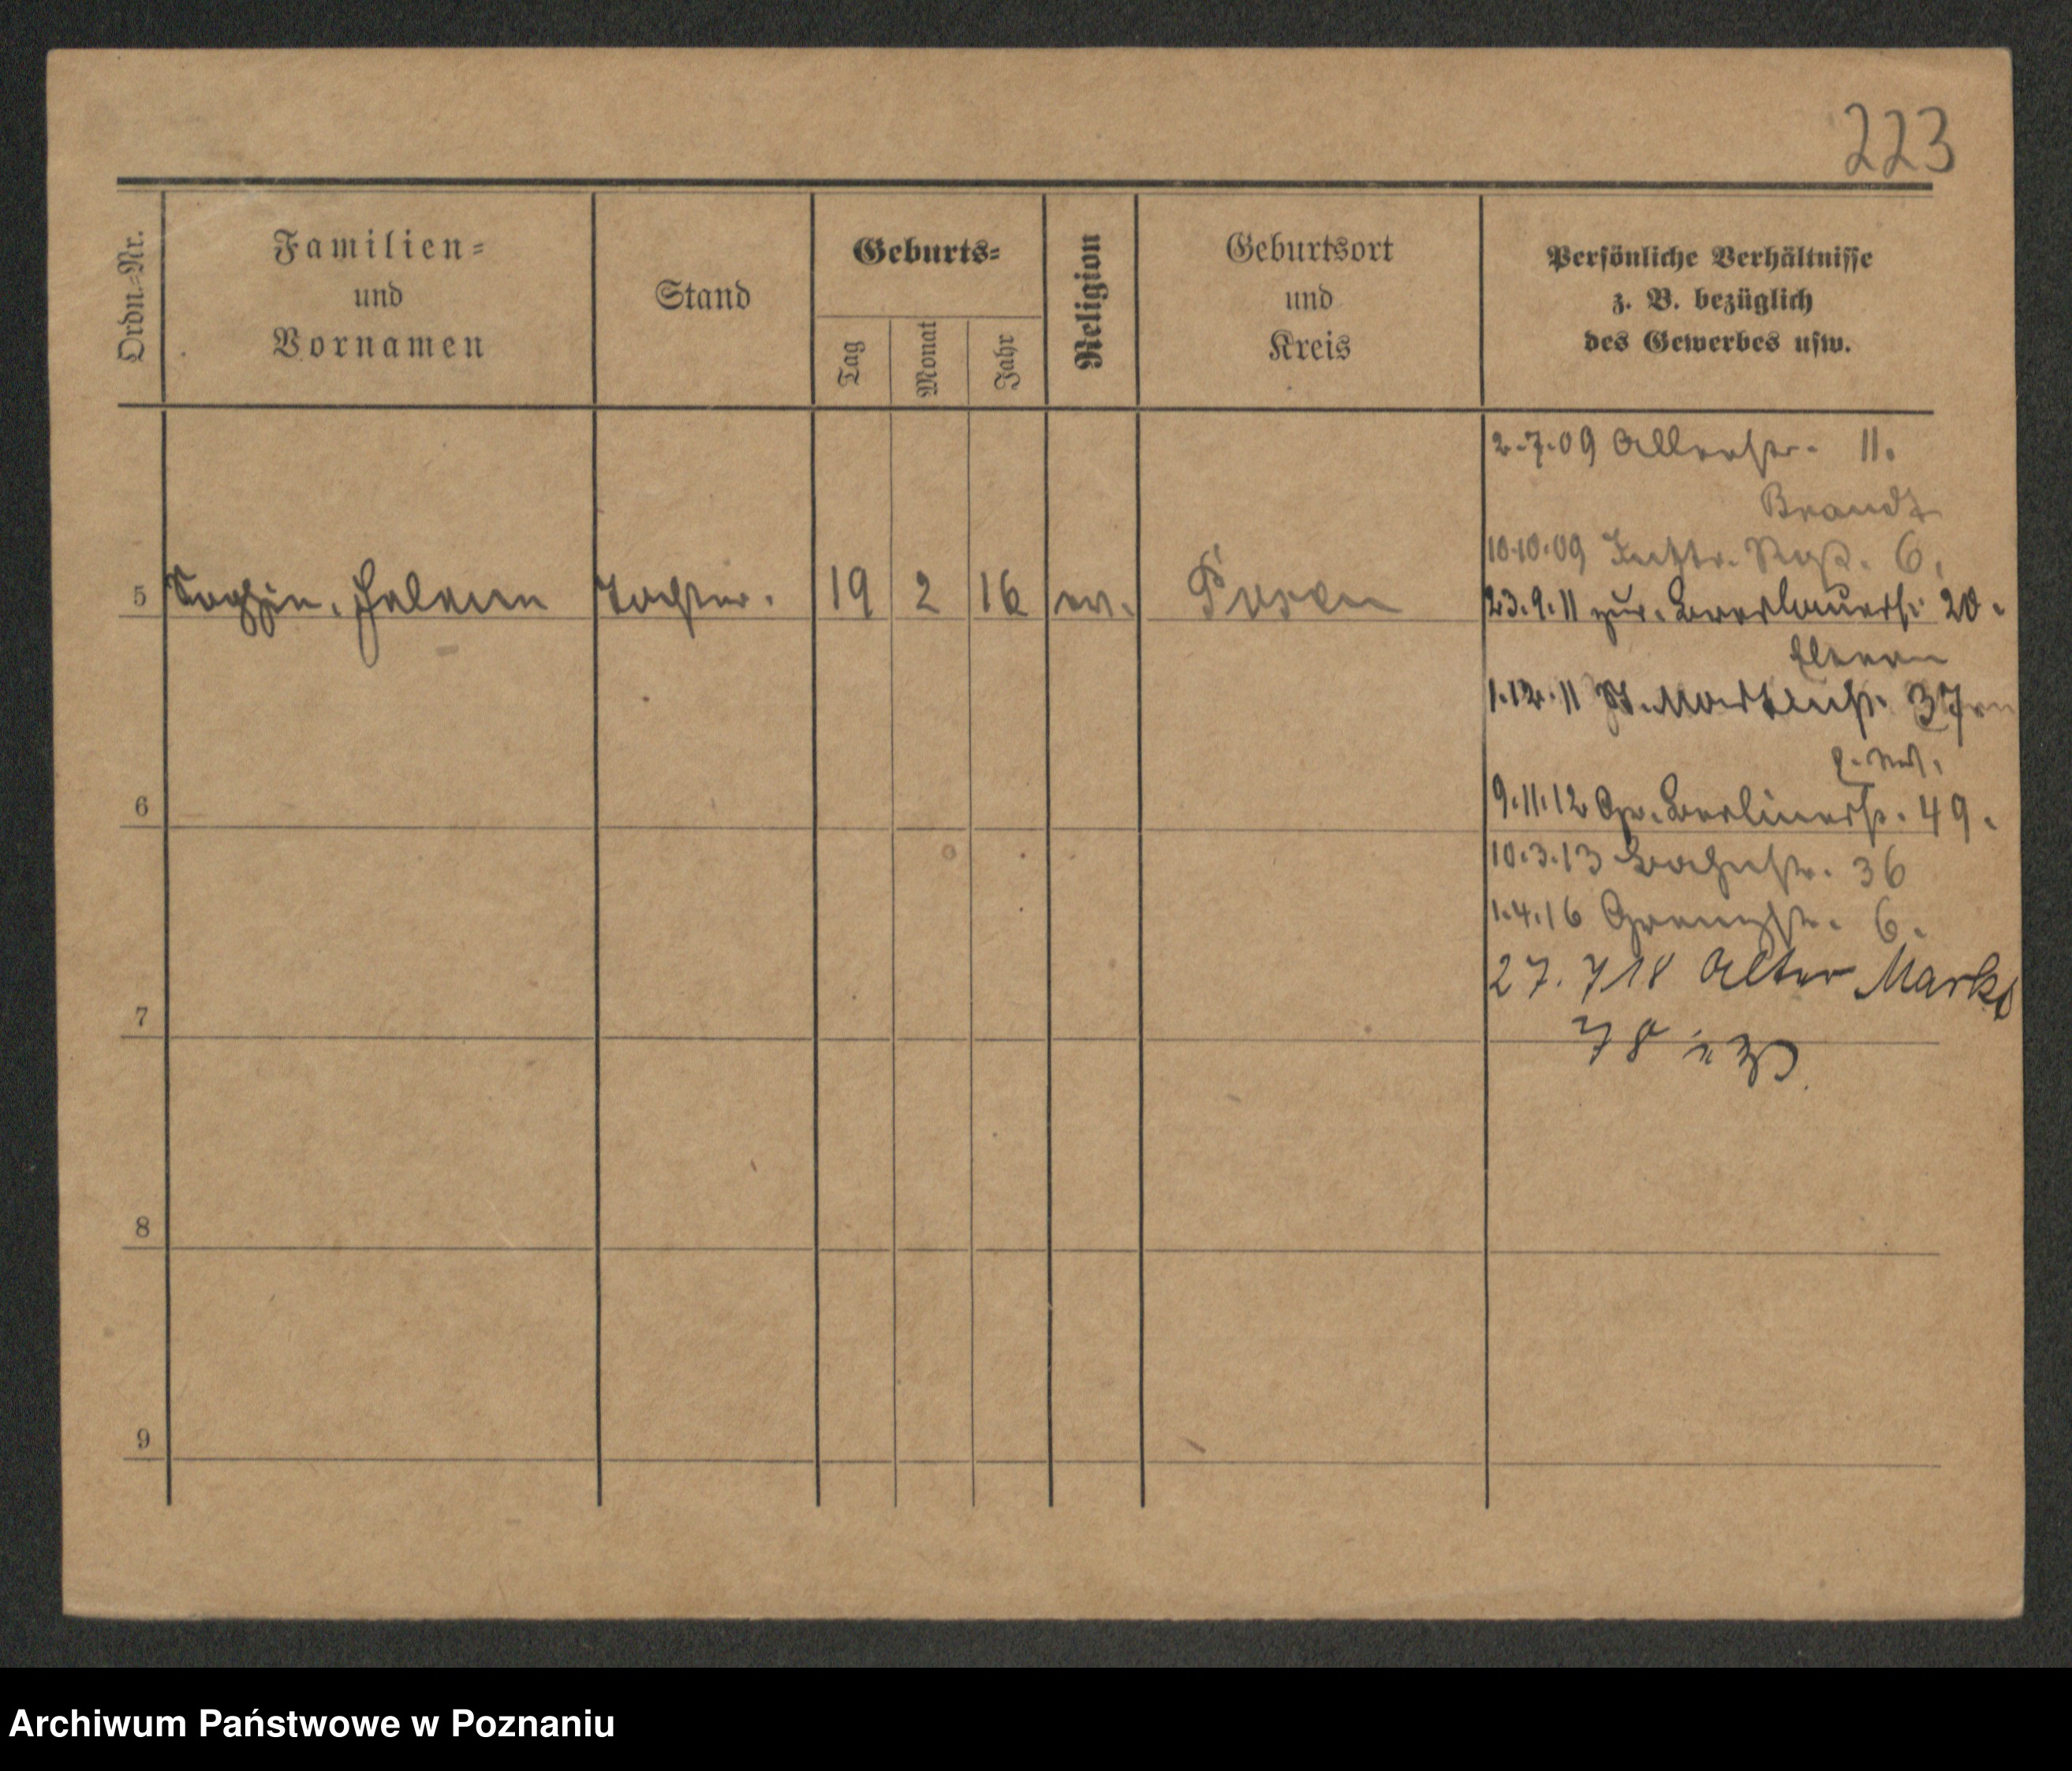 223
Ordn.=Nr.
Familien=
und
Vornamen
Stand
Geburts=
Tag
Monat
Jahr
Religion
Geburtsort
und
Kreis
Persönliche Verhältnisse
z. B. bezüglich
des Gewerbes usw.
2.7.09 11.
Brandt
10.10.09 6.
5 Helene Tochter. 19 2 16 ev. Posen
23.9.11 zur. Breslauerstr. 20.
Eltern
1.12.11 St. Martinstr. 37
6
9.11.12 Gr. Berlinerstr. 49.
10.3.13 36
1.4.16 Grenzstr. 6.
27.7 18 Alter Markt
7
78
8
9
Archiwum Państwowe w Poznaniu